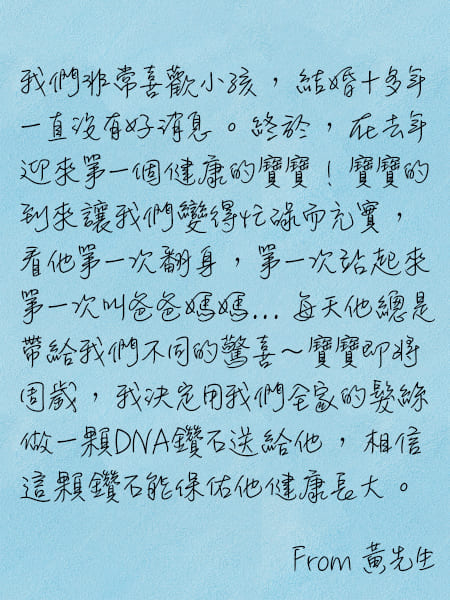 我們非常喜歡小孩，結婚十多年
一直沒有好消息。終於，在去年
迎來第一個健康的寶寶！寶寶的
到來讓我們變得忙碌而充實，
看他第一次翻身，第一次站起來
第一次叫爸爸媽媽... 每天他總是
帶給我們不同的驚喜～寶寶即將
周歲，我決定用我們全家的髮絲
做一顆DNA鑽石送給他，相信
這顆鑽石能保佑他健康長大。
From 黃先生